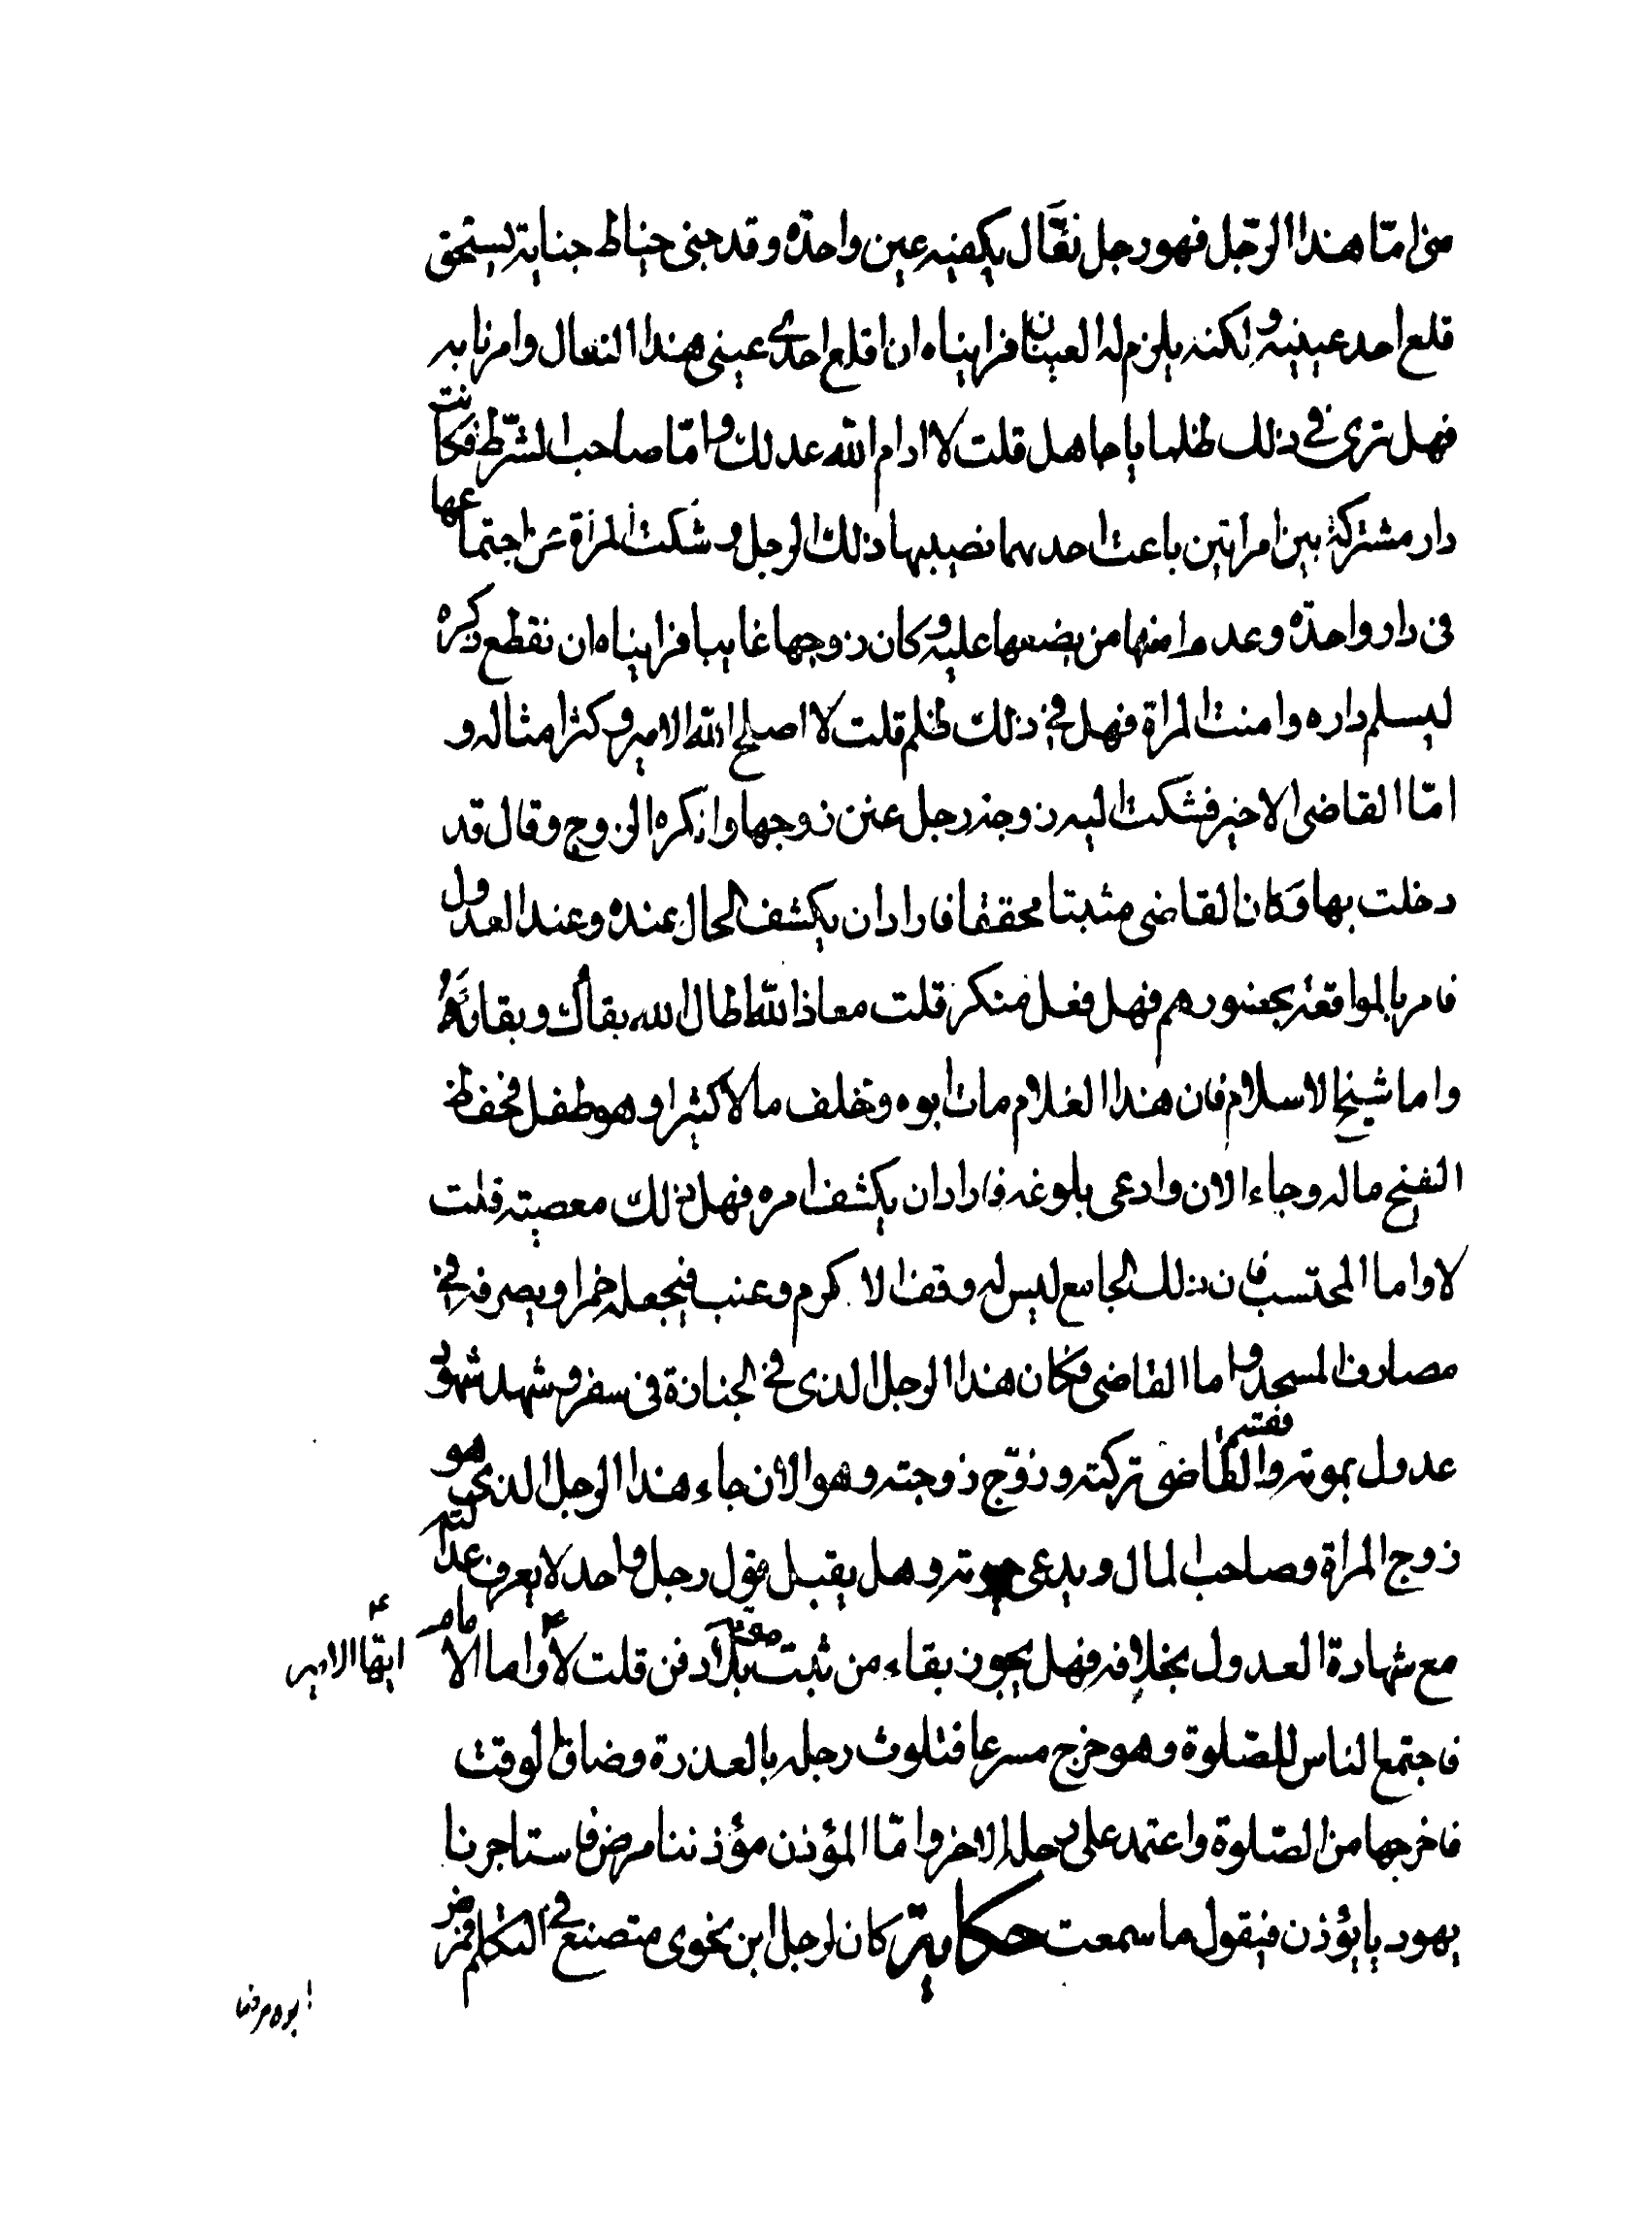 منى امّا هذا الرّجل فهو رجل نعّال يكفيه عين واحدة وقد جنى خياط جناية يستحق
قلع احد عينيه ولكنه يلزم له العينان فراينا ان اقلع احدى عينى هذا النعال وامرنا به
فهل ترى فى ذلك ظلما يا جاهل قلت لا ادام الله عدلك وامّا صاحب الشرّط فكانت
دار مشتركة بين امراتين باعت احدهما نصيبها ذلك الرجل وشكت المراة عن اجتماعها
فى دار واحدة وعدم امنها من بضعها عليه وكان زوجها غايبا فراينا ان نقطع ذكره
ليسلم داره وامنت المراة فهل فى ذلك ظلم قلت لا اصلح الله الامير وكثر امثاله و
امّا القاضى الاخير فشكت اليه زوجة رجل عنن زوجها وانكره الزوج وقال قد
دخلت بها وكان القاضى مثبتا محققا فاراد ان يكشف الحال عنده وعند العدول
فامر بالمواقعة بحضورهم فهل فعل منكر قلت معاذ الله اطال الله بقاك وبقائه
واما شيخ الاسلام فان هذا الغلام مات ابوه وتخلف مالا كثيرا وهو طفل فحفظ
الشيخ ماله وجاء الان وادعى بلوغه فاراد ان يكشف امره فهل ذلك معصية قلت
لا واما المحتسب فان ذلك الجامع ليس له وقف الا كرم وعنب فيجعله خمرا ويصرفه فى
مصارف المسجد واما القاضى فكان هذا الرجل الذى فى الجنازة فى سفر وشهد شهود
عدول بموته والقاضى فقسم تركته وزوّج زوجته وهو الان جاء هذا الرجل الذى هو
زوج المراة وصاحب المال ويدعى حيوته وهل يقبل قول رجل واحد لا يعرف عدالته
مع شهادة العدول بخلافه فهل يجوز بقاء من ثبت موته بلا دفن قلت لا واما الامام ايّها الامير
فاجتمع الناس للصّلوة وهو خرج مسرعا فتلوث رجله بالعذرة وضاق الوقت
فاخرجها من الصّلوة واعتمد على رجله الاخر وامّا المؤذن مؤذننا مرض فاستاجرنا
يهوديا يؤذن فيقول ما سمعت حكاية كان لرجل ابن نحوى متصنع فى التكلم فمرض
ابوه مرضا